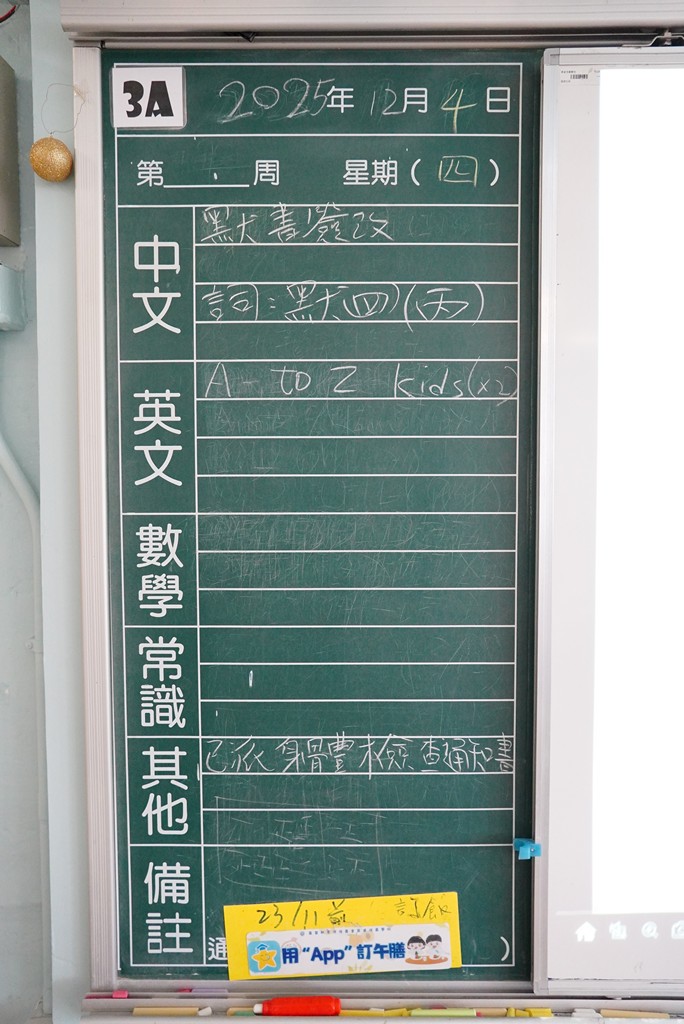 3A
2025年 12月 4日
第 周 星期(四)
中文
默書簽改
詞:默四(丙)
英文
A to Z kids(x2)
數學
常識
其他
已派身體檢查通知書
備註
23/11前 訂飯
用“App”訂午膳
通 )